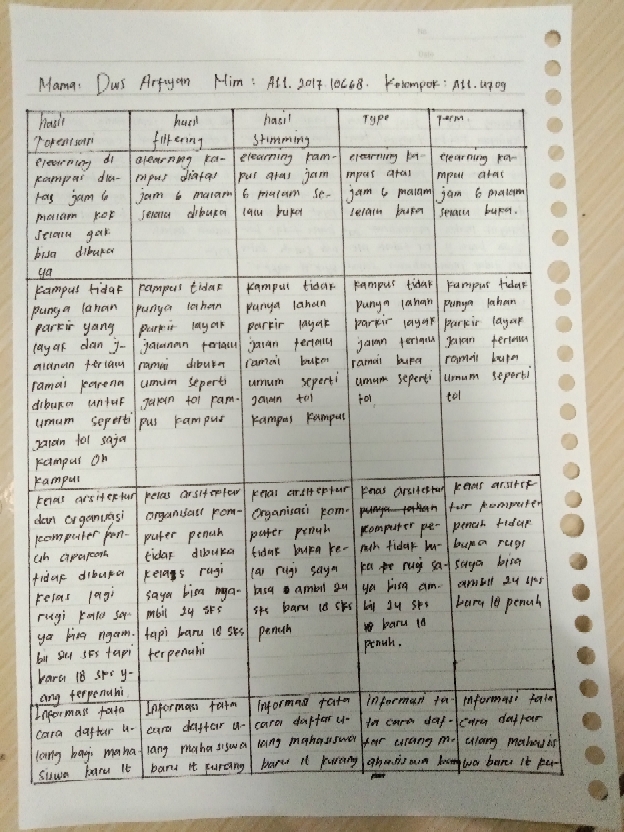 Nama: Dws Arfiyan Nim: A11.2017.10668. Kelompok: A11.4709
hasil
Tokenisasi
elearning di
kampus dia-
tas jam 6
malam kok
selalu gak
bisa dibuka
ya
hasil
filtering
elearning ka-
mpus diatas
jam 6 malam
selalu dibuka
hasil
Stimming
elearning kam-
pus atas jam
6 malam se-
lalu buka
Type
elearning ka-
mpus atas
jam 6 malam
selalu buka
Term
elearning ka-
mpus atas
jam 6 malam
selalu buka.
kampus tidak
punya lahan
parkir yang
layak dan j-
alanan terlalu
ramai karena
dibuka untuk
umum seperti
jalan tol saja
kampus oh
kampus
kampus tidak
punya lahan
parkir layak
jalanan terlalu
ramai dibuka
umum seperti
jalan tol kam-
pus kampus
kampus tidak
punya lahan
parkir layak
jalan terlalu
ramai buka
umum seperti
jalan tol
kampus kampus
kampus tidak
punya lahan
parkir layak
jalan terlalu
ramai buka
umum seperti
tol
kampus tidak
punya lahan
parkir layak
jalan terlalu
ramai buka
umum seperti
tol
kelas arsitektur
dan organisasi
komputer pen-
uh apakah
tidak dibuka
kelas lagi
rugi kalo sa-
ya bisa ngam-
bil 24 sks tapi
baru 18 sks y-
ang terpenuhi
kelas arsitektur
organisasi kom-
puter penuh
tidak dibuka
kelas rugi
saya bisa nga-
mbil 24 sks
tapi baru 18 sks
terpenuhi
kelas arsitektur
organisasi kom-
puter penuh
tidak buka ke-
las rugi saya
bisa ambil 24
sks baru 18 sks
penuh
kelas arsitektur
punya lahan
komputer pe-
nuh tidak bu-
ka rugi sa-
ya bisa am-
bil 24 sks
baru 18
penuh.
kelas arsitek
tur komputer
penuh tidak
buka rugi
saya bisa
ambil 24 sks
baru 18 penuh
Informasi tata
cara daftar u-
lang bagi maha-
siswa baru it
Informasi tata
cara daftar u-
lang mahasiswa
baru it kurang
Informasi tata
cara daftar u-
lang mahasiswa
baru it kurang
Informasi ta-
ta cara daf-
tar ulang m-
ahasiswa
Informasi tata
cara daftar
ulang mahasis
wa baru it ku-